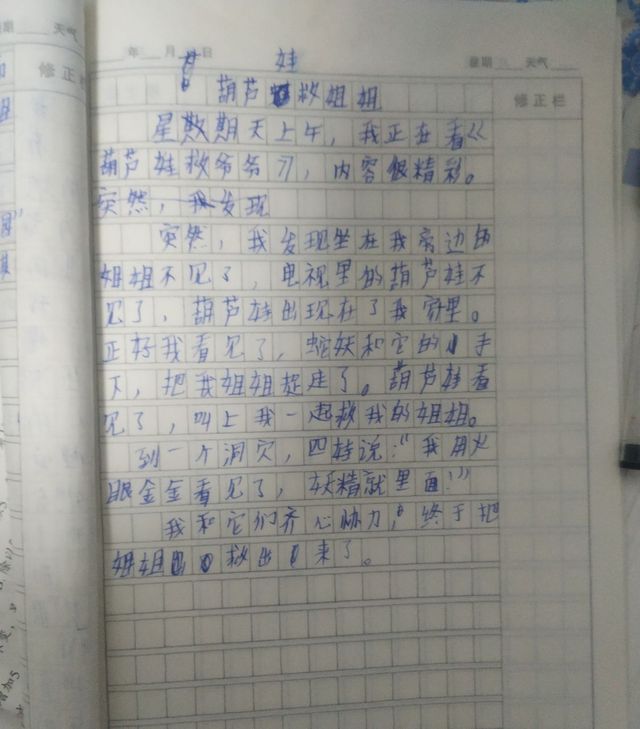 年 月 日 星期 天气
修正栏
葫芦娃救姐姐
星期天上午，我正在看《
葫芦娃救爷爷》，内容很精彩。
突然，我发现
突然，我发现坐在我旁边的
姐姐不见了，电视里的葫芦娃不
见了，葫芦娃出现在了我家里。
正好我看见了，蛇妖和它的小手
下，把我姐姐捉走了。葫芦娃看
见了，叫上我一起救我的姐姐。
到一个洞穴，四娃说：“我用火
眼金金看见了，妖精就里面！”
我和它们齐心协力，终于把
姐姐救出来了。
天气
修正栏